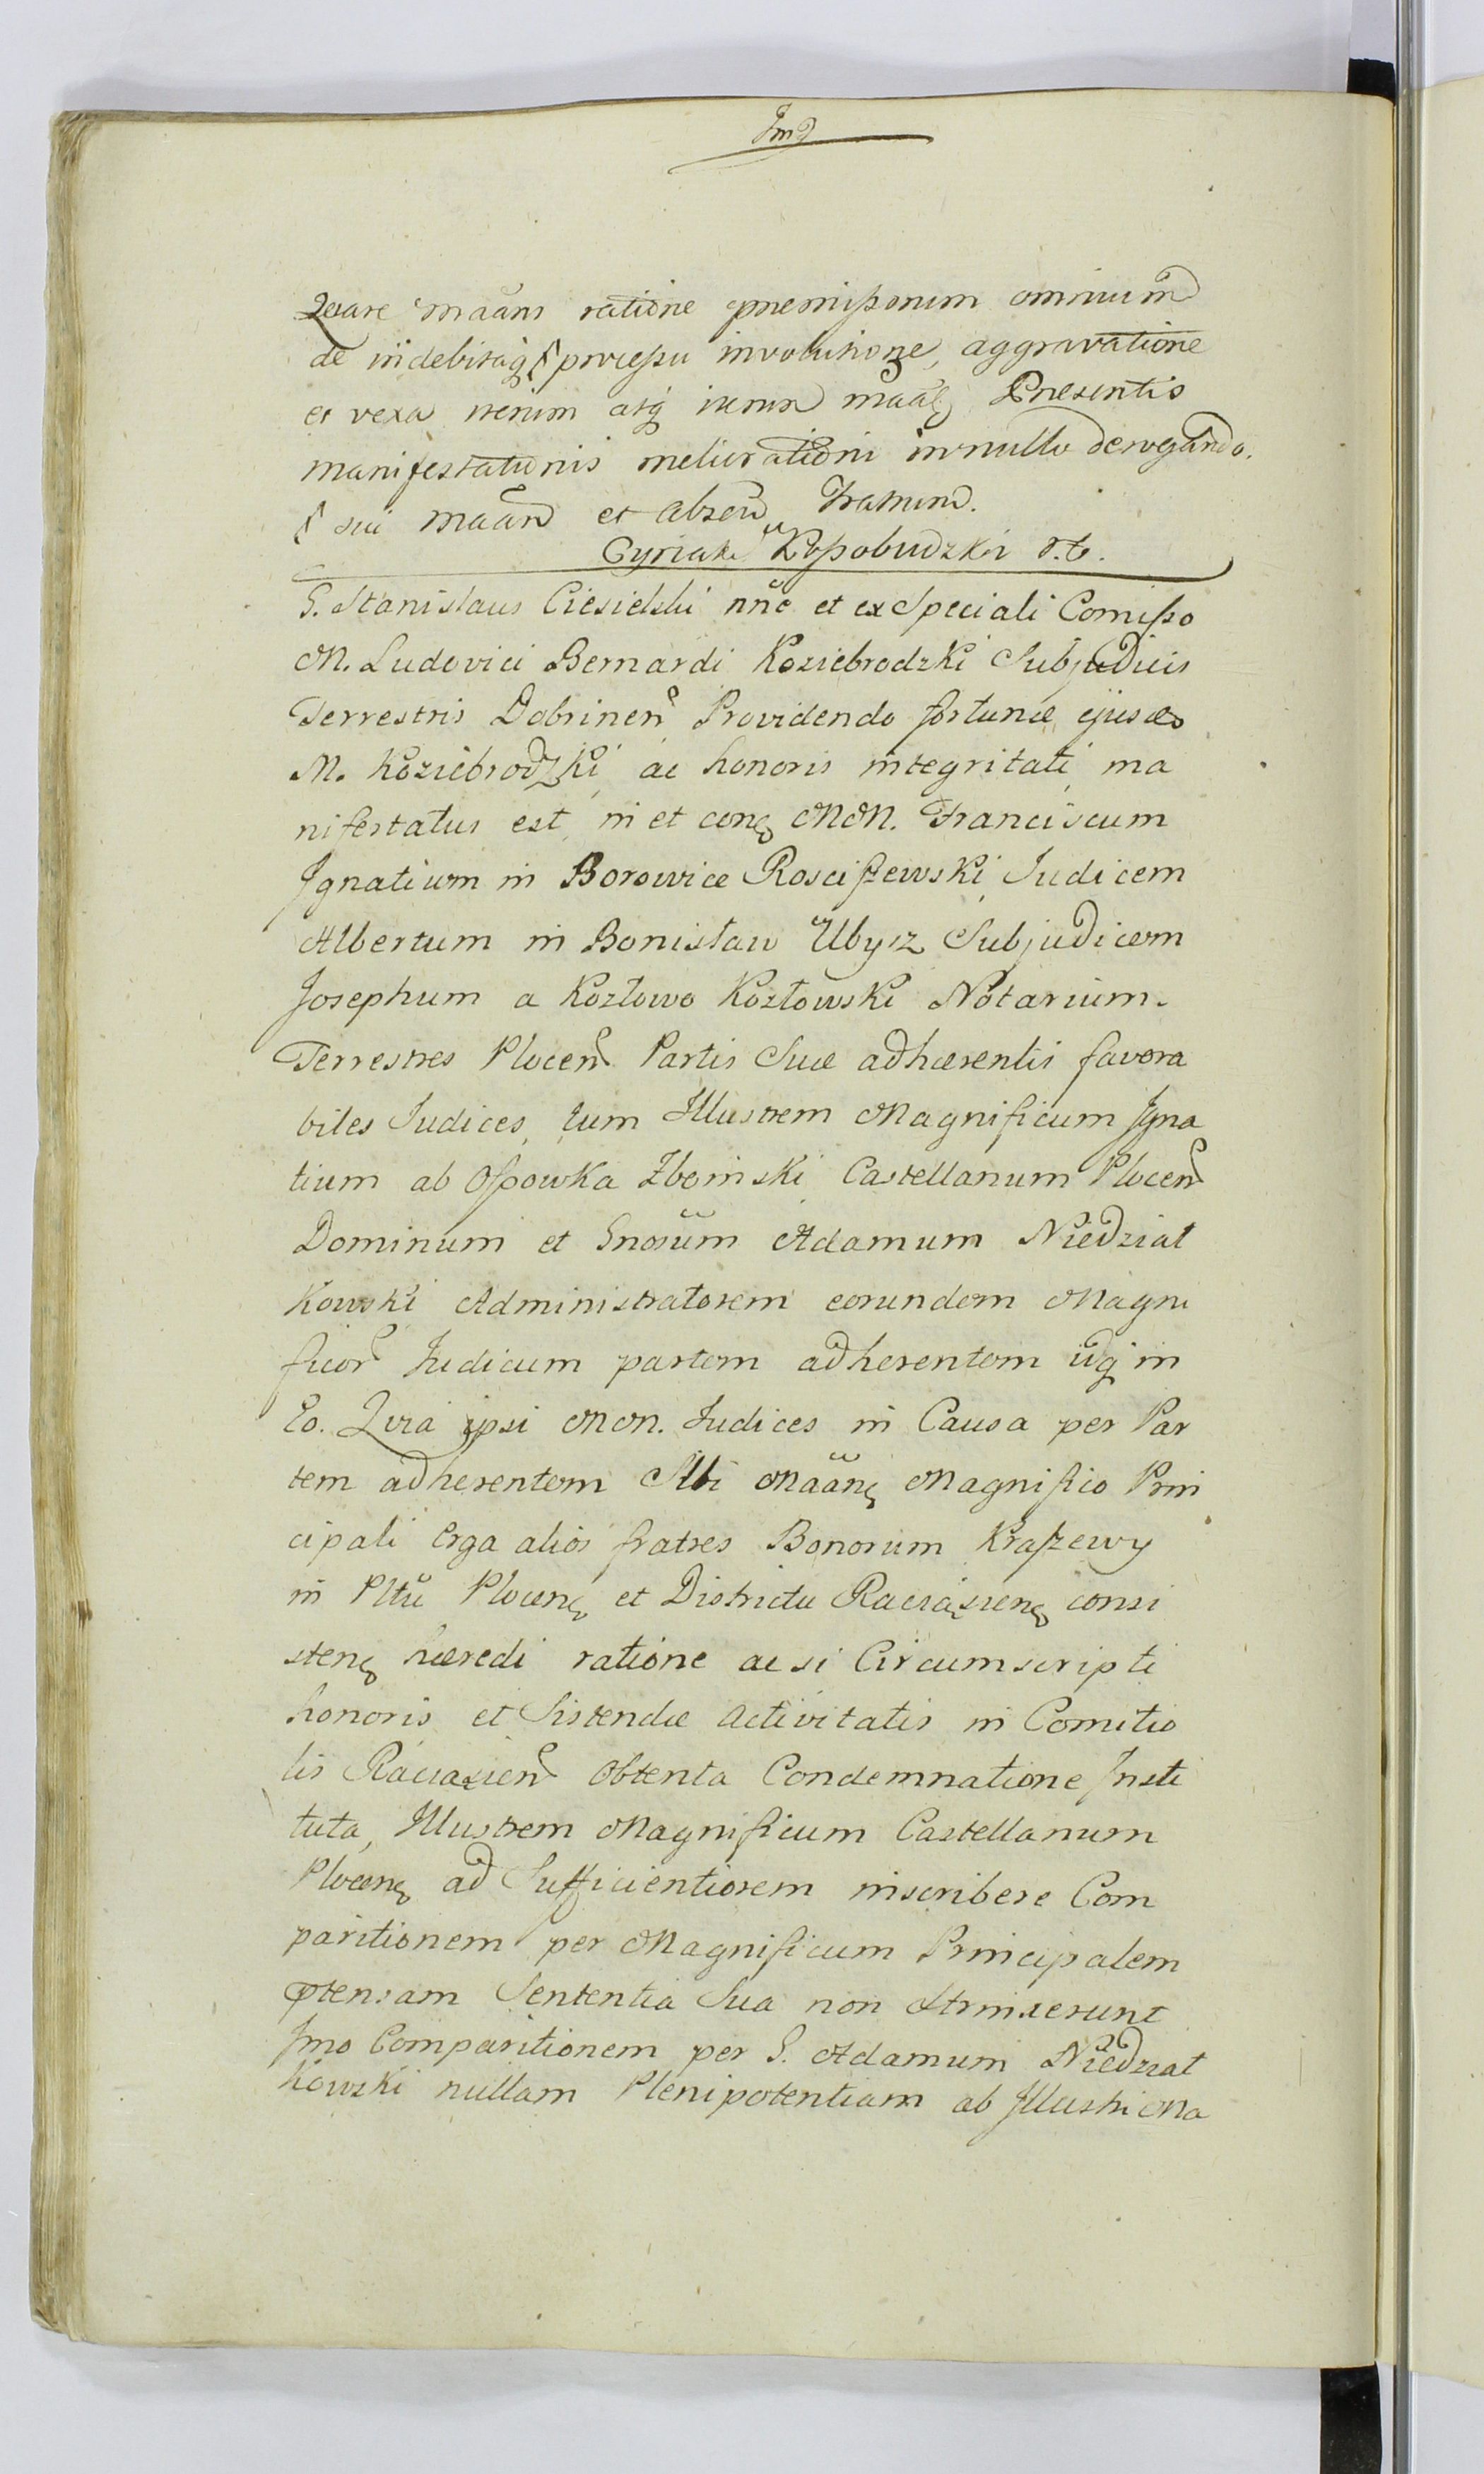 Quare maans ratione premissorum omnium
de indebitaq processu involutione, aggravatione
et vexa iterum atq iterum Presentis
manifestationis meliorationi in nullo derogando.
sui et absen Fratrum.
Cyriaki
G. Stanislaus Ciesielski nne et ex Speciali Comisso
M. Ludovici Bernardi Koziebrodzki Subjudicis
Terrestris Dobrinen Providendo fortunæ ejusdo
M. Koziebrodzki ac honoris integritati, ma
nifestatus est in et con MM. Franciscum
Ignatium in Borowice Rosciszewski Judicem
Albertum in Bonisław Ubysz Subjudicem
Josephum a Kozłowo Kozłowski Notarium.
Terrestres Plocen Partis Suæ adhærentis favora
biles Judices, tum Illustrem Magnificum Igna
tium ab Ossowka Zboinski Castellanum Plocen
Dominum et Gnosum Adamum Niedział
kowski Administratorem eorundem Magni
ficor Judicum partem adherentem idq in
Eo. Quia ipsi MM. Judices in Causa per Par
tem adherentem Sibi Maan Magnifico Prin
cipali Erga alios fratres Bonorum Kraszewy
in Pltu Plocen et Districtu Raciązien consi
sten hæredi ratione ac si Circumscripti
honoris et Sistendæ Activitatis in Comitio
lis Raciazien Obtenta Condemnatione Insti
tuta, Illustrem Magnificum Castellanum
Plocen ad Sufficientiorem inscribere Com
paritionem per Magnificum Principalem
ptensam Sententia Sua non Strinxerunt
Imo Comparitionem per G. Adamum Niedział
kowski nullam Plenipotentiam ab Illustri Ma